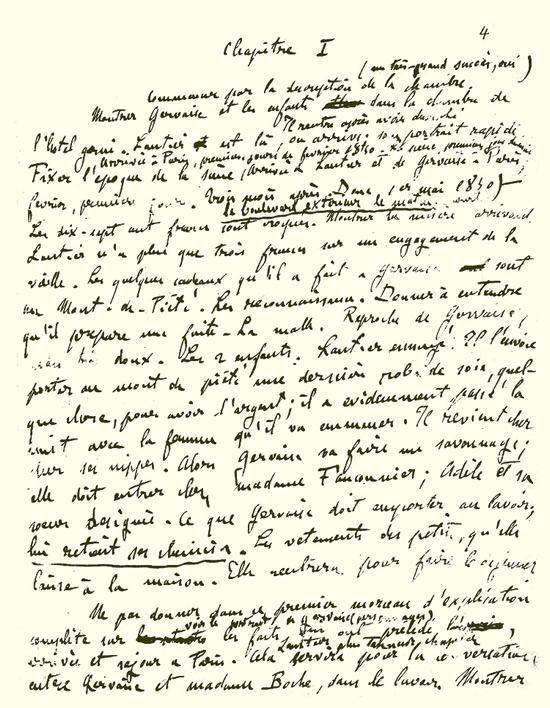 4
Chapitre I
(un très-grand succès, oui)
Commencer par la description de la chambre.
Montrer Gervaise et les enfants dans la chambre de
l'hôtel garni. Lantier est là, ou arrive. son portrait rapide
Fixer l'époque de la scène (Arrivée à Paris, premiers jours de février 1850. Lantier et de Gervaise à Paris,
février, premiers jours. Trois mois après. Donc, 1er mai 1850)
le boulevard extérieur le matin
Les dix-sept cent francs sont croqués. Montrer la misère arrivant.
Lantier n'a plus que trois francs sur un engagement de la
veille. Les quelques cadeaux qu'il a fait à Gervaise sont
au Mont-de-Piété. Les reconnaissances. Donner à entendre
qu'il prépare une fuite. La malle. Reproche de Gervaise,
doux. Les 2 enfants. Lantier ennuyé ?? l'envoie
porter au mont de piété une dernière robe de soie, quel-
que chose, pour avoir l'argent; il a évidemment passé la
nuit avec la femme qu'il va emmener. Il revient cher
cher ses nippes. Alors Gervaise va faire un savonnage;
elle doit entrer chez madame Fauconnier; Adèle et sa
soeur désignée. Ce que Gervaise doit emporter au lavoir,
lui retient ses chemises. Les vêtements des petits, qu'elle
laisse à la maison. Elle rentrera pour faire le déjeuner
Ne pas donner dans ce premier morceau d'explication
complète sur les faits qui ont précédé l'arrivée,
arrivée et séjour à Paris. Cela servira pour la conversation,
entre Gervaise et madame Boche, dans le lavoir. Montrer